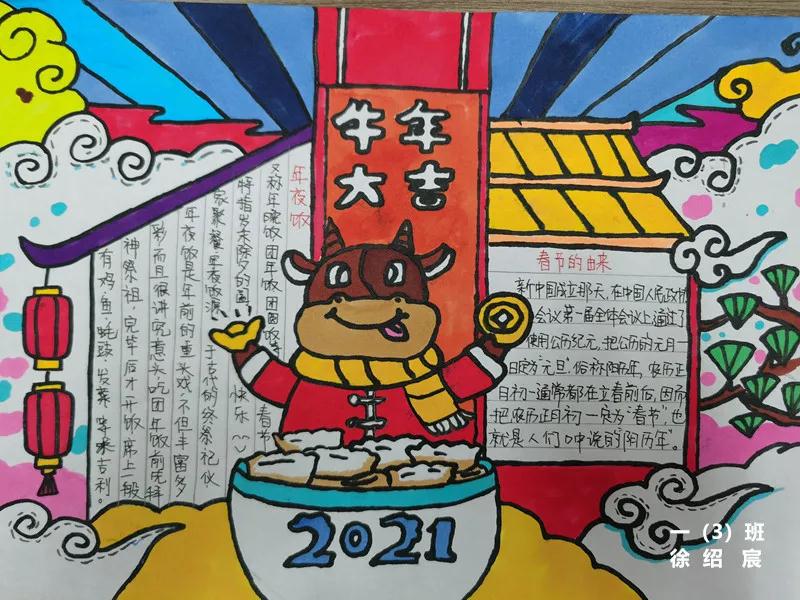 牛年
大吉
年夜饭
又称年晚饭团年饭团圆饭等
特指岁末除夕的
家聚餐年夜饭源于古代的终祭祀仪
年夜饭是年前的重头戏,不但丰富多
彩而且很讲究意头吃团年饭前先拜
神祭祖,完毕后才开饭席上一般
有鸡、鱼、蚝豉、发菜、味吉利。
春节
快乐
春节的由来
新中国成立那天,在中国人民政协
会议第一届全体会议上通过了
使用公历纪元,把公历的元月一
日定为"元旦",俗称阳历年,农历正
月初一通常都在立春前后,因而
把农历正月初一定为"春节"也
就是人们口中说的阳历年"。
2021
一（3）班
徐绍宸